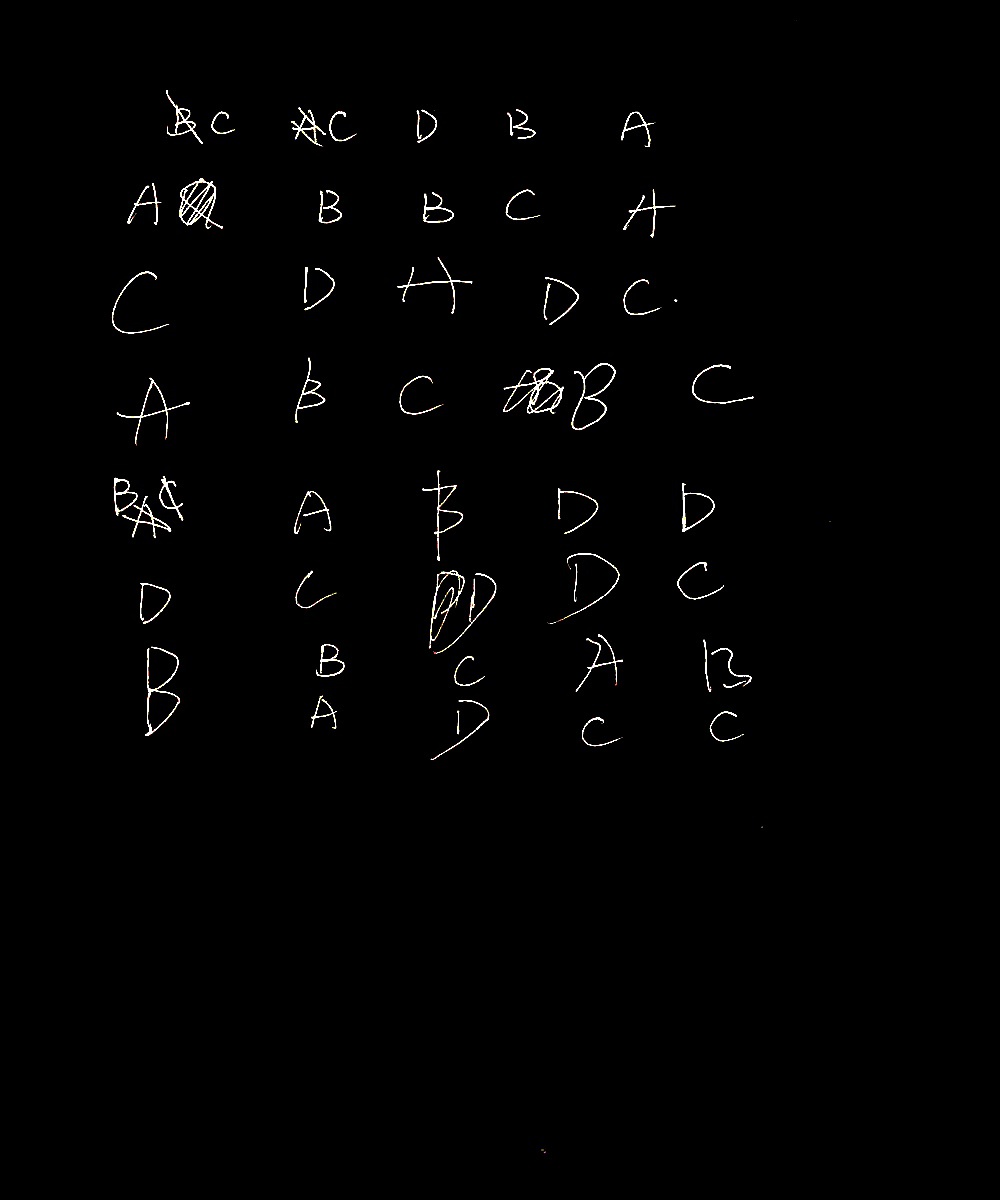 C C D B A
A B B C A
C D A D C.
A B C B C
B A B D D
D C D D C
B B C A B
A D C C